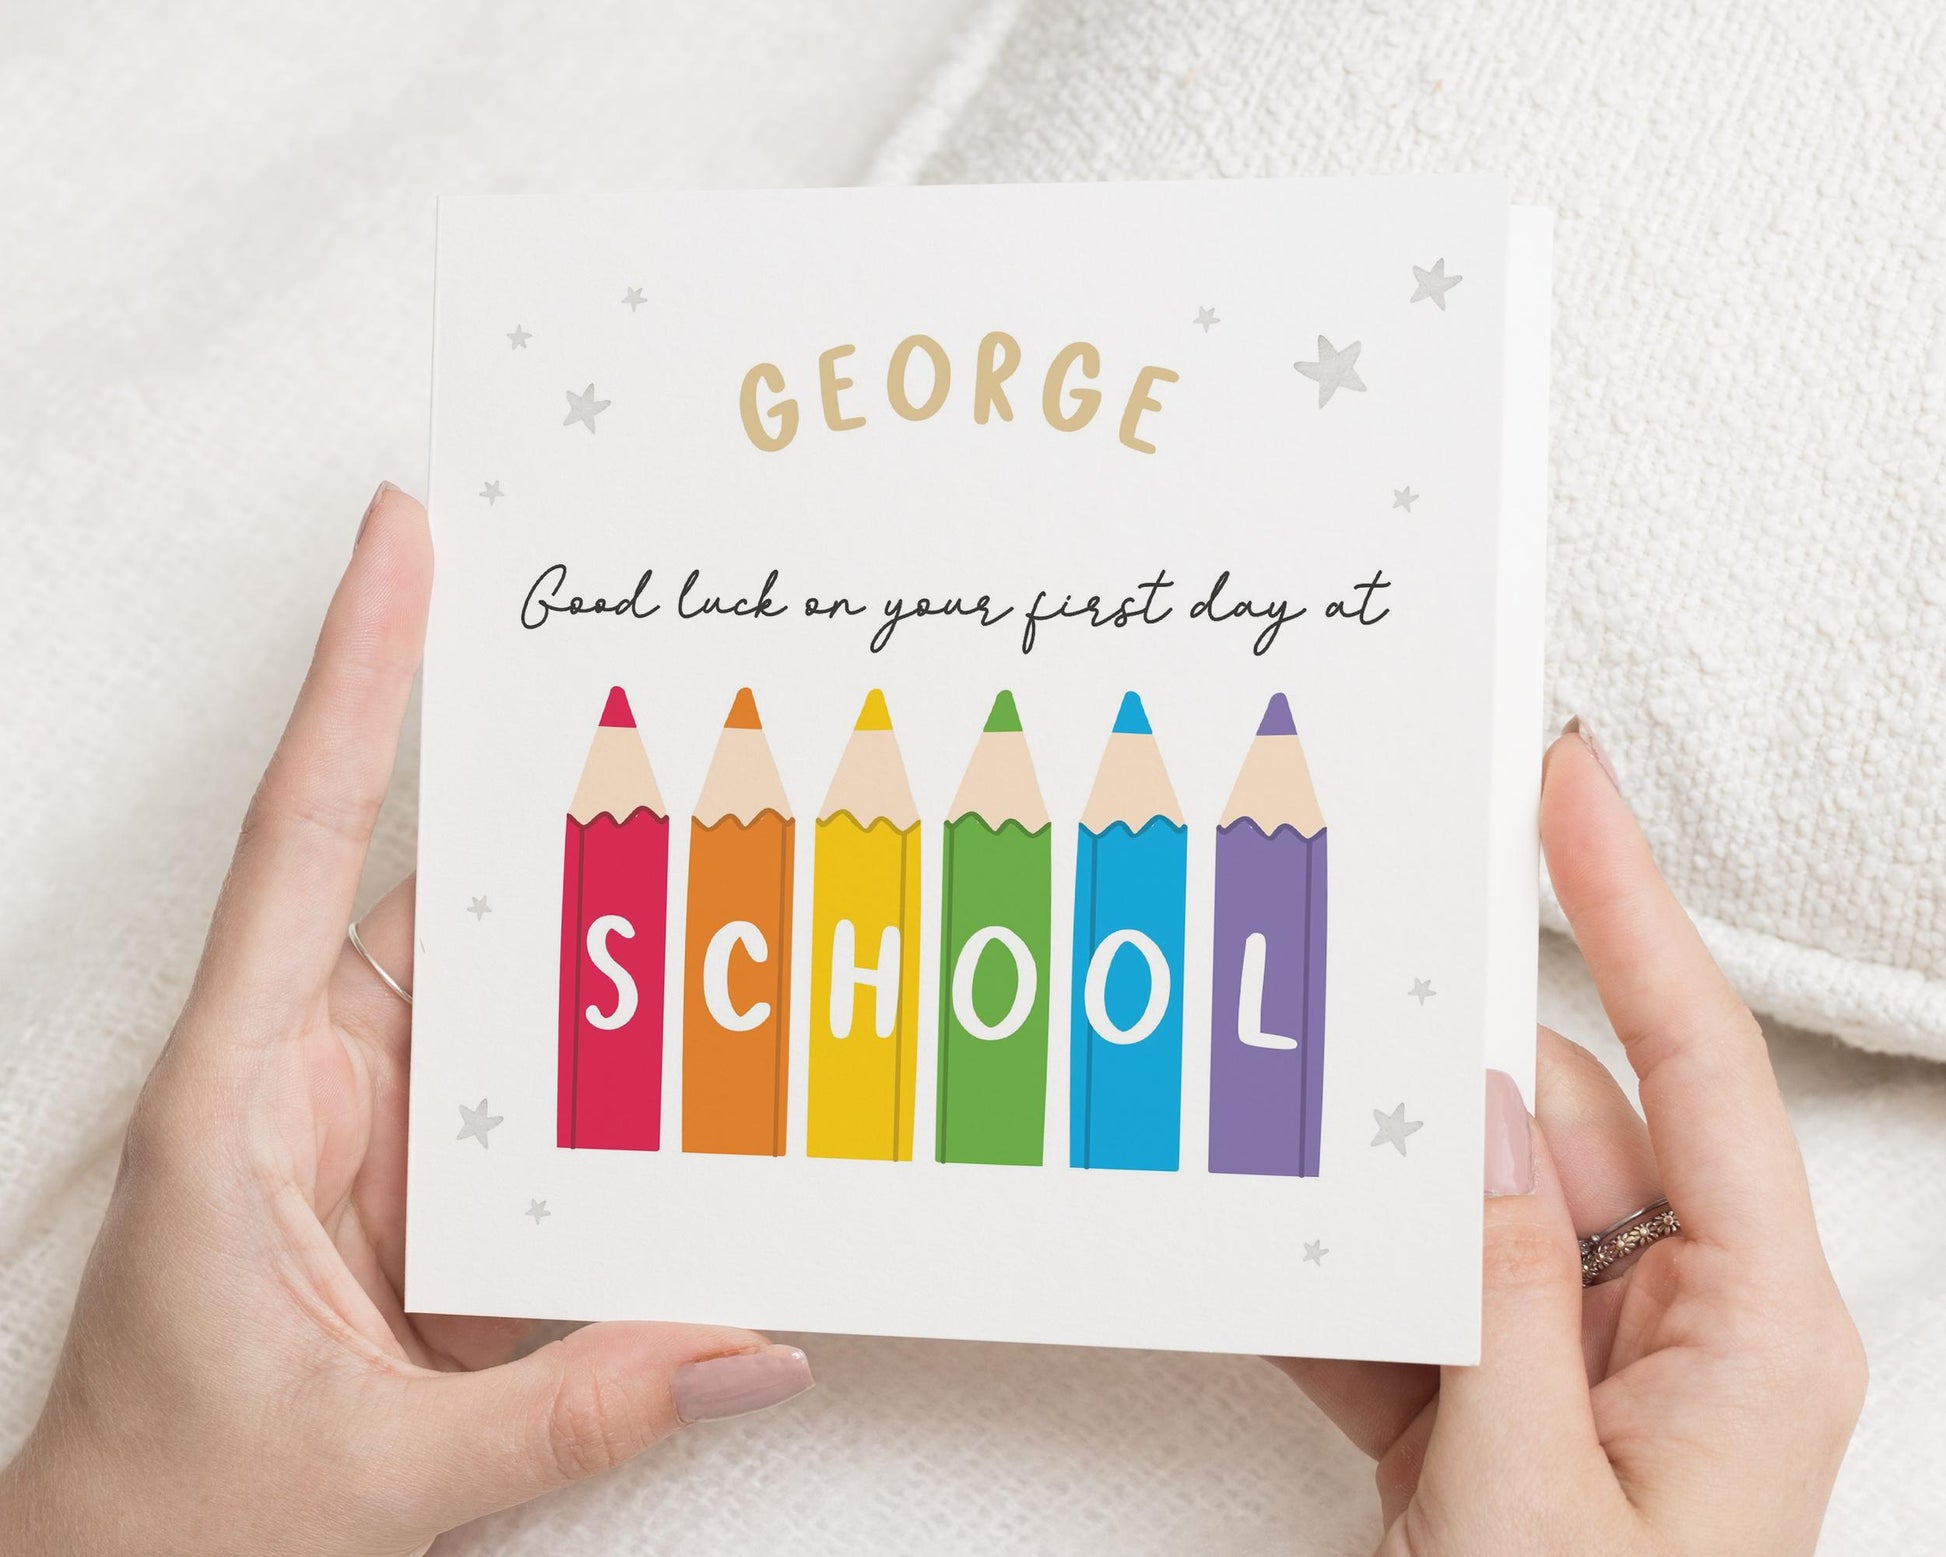 GEORGE
Good luck on your first day at
SCHOOL